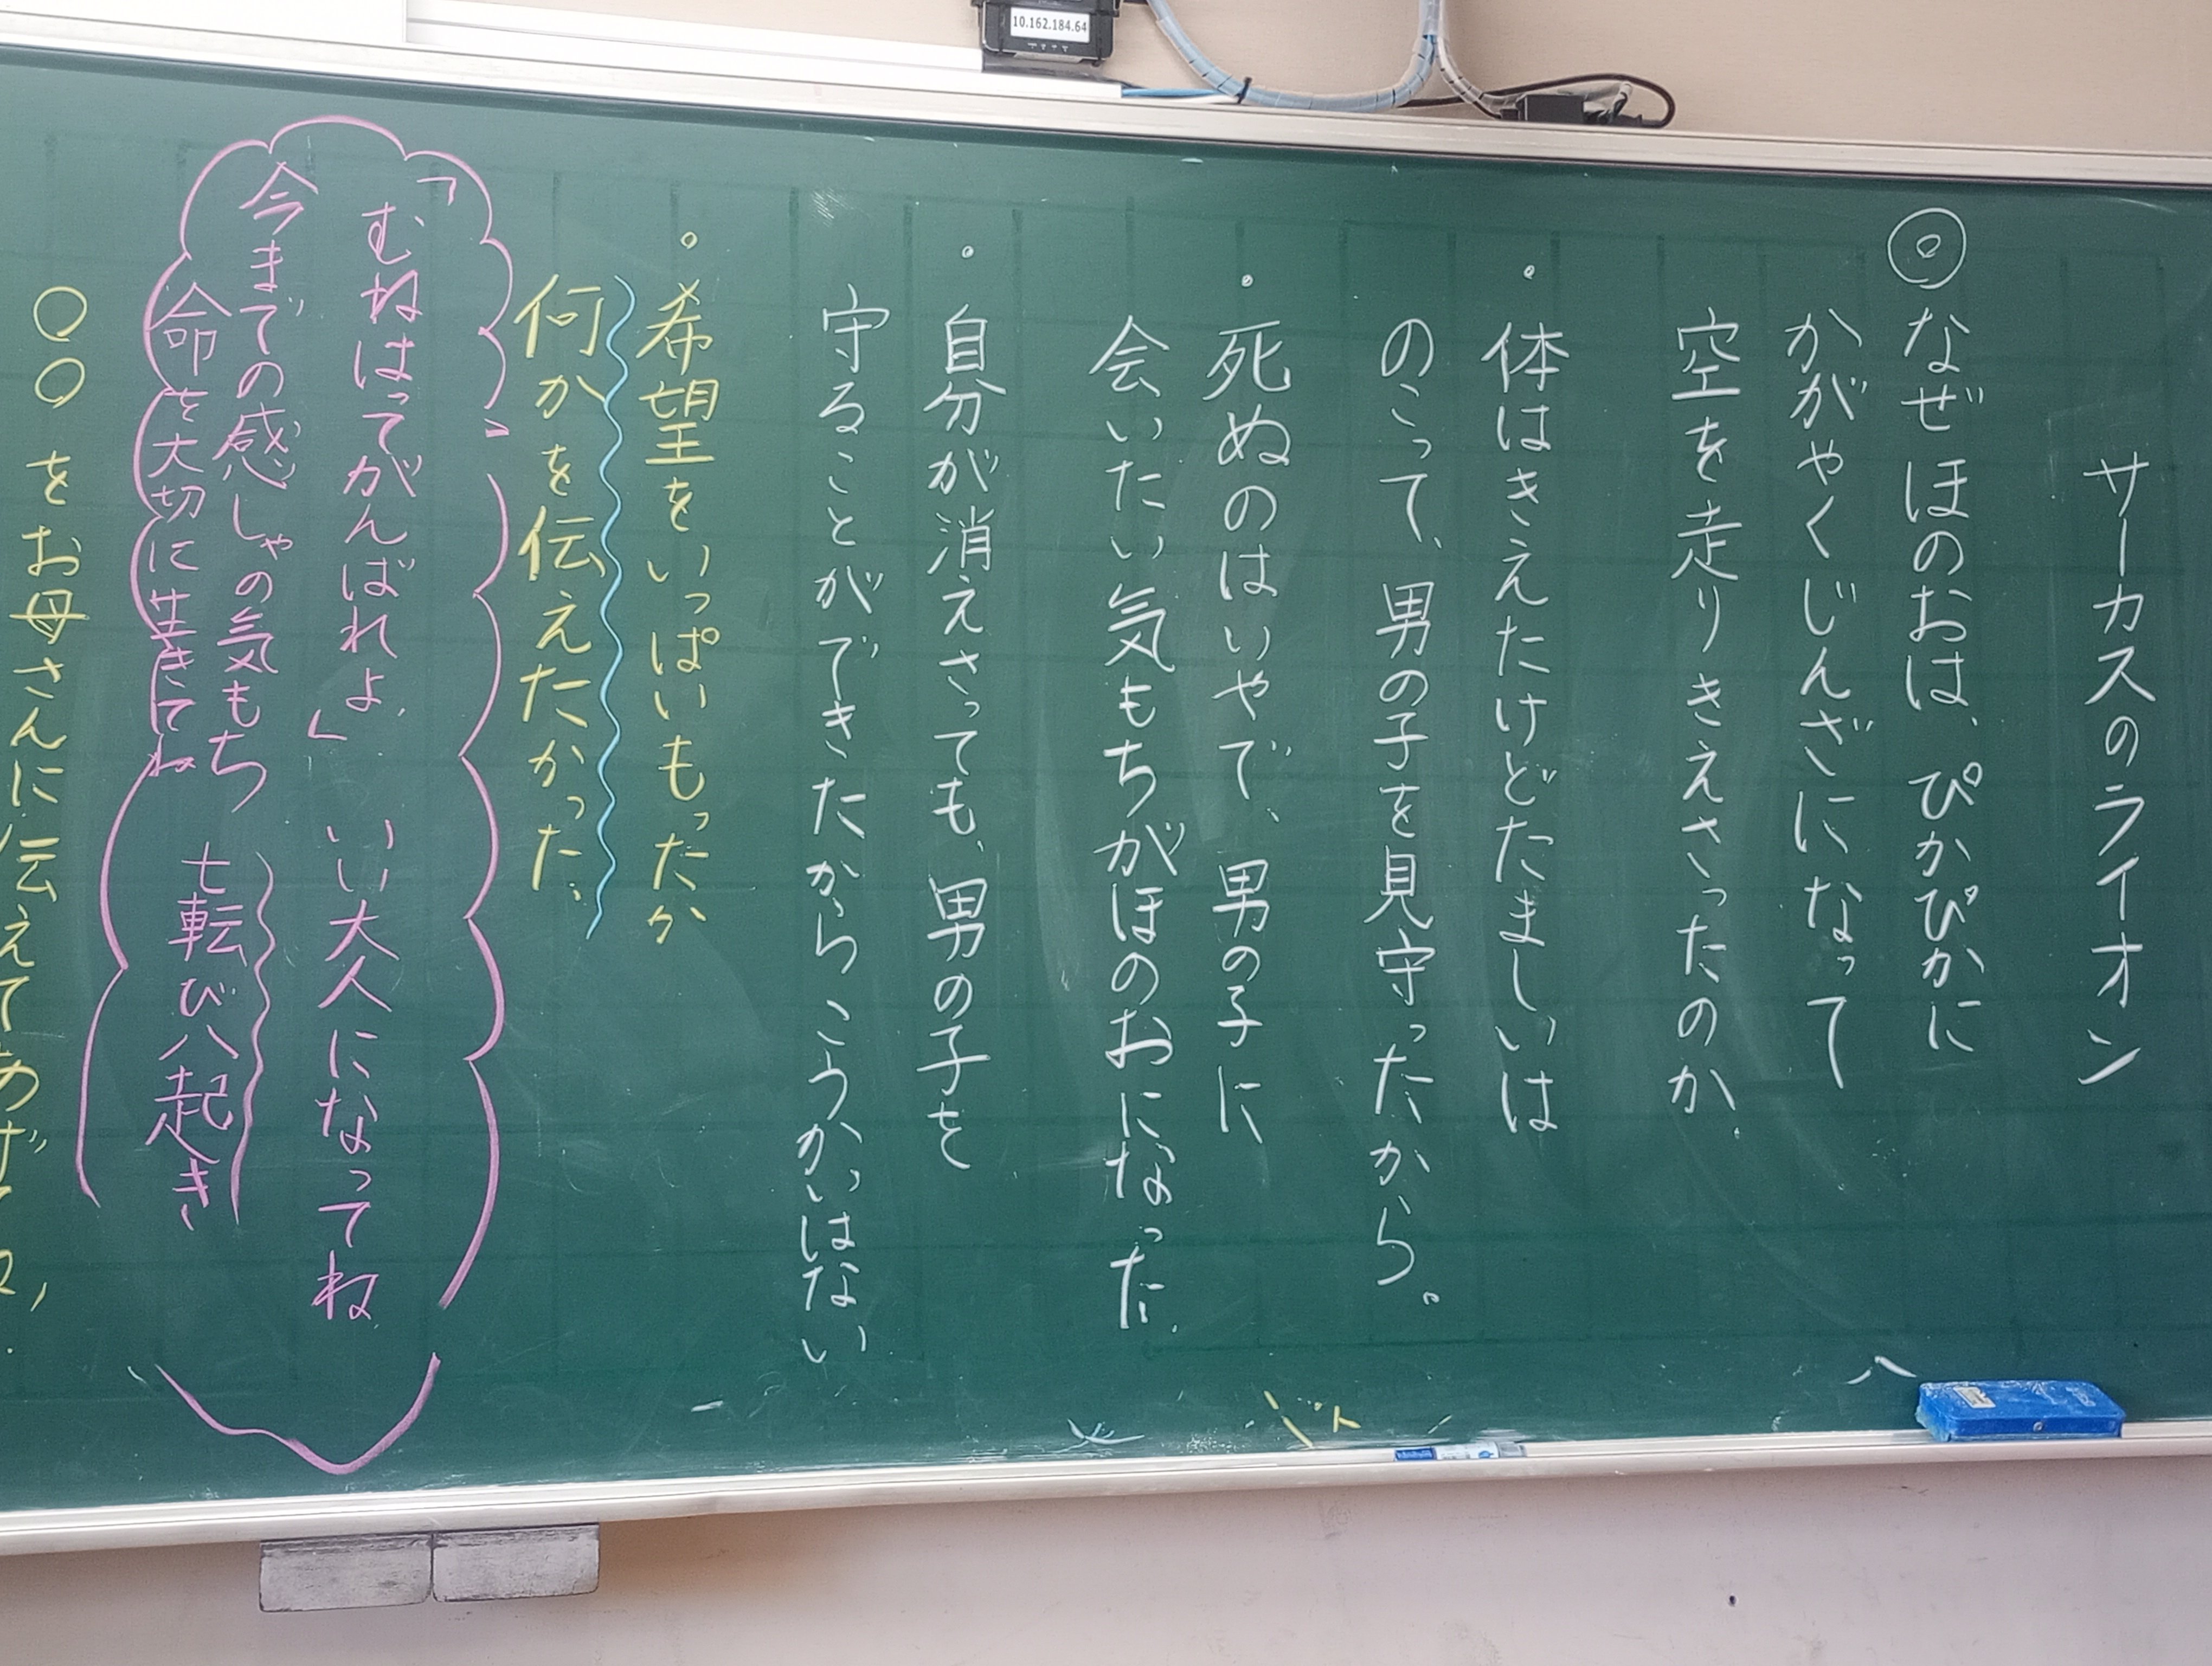 サーカスのライオン
◎なぜほのおは、ぴかぴかに
かがやくじんざになって
空を走りきえさったのか
・体はきえたけどたましいは
のこって、男の子を見守ったから。
・死ぬのはいやで、男の子に
会いたい気もちがほのおになった。
・自分が消えさっても、男の子を
守ることができたからこうかいはない
・希望をいっぱいもったか
何かを伝えたかった。
「むねはってがんばれよ」
いい大人になってね
今までの感しゃの気もち
命を大切に生きてね
七転び八起き
〇〇をお母さんに伝えてあげてね
10.162.184.64